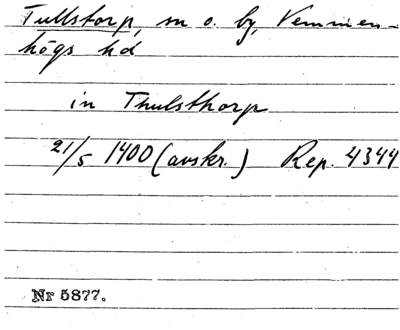 Tullstorp, sn o. by, Vemmen-
högs hd
in Thulsthorp
21/5 1400 (avskr.) Rep. 4344
Nr 5877.